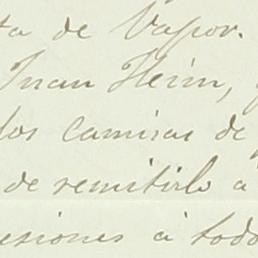 ta de Vapor.
Juan Heim,
los camisas de
de remitirlo a
esiones á todo